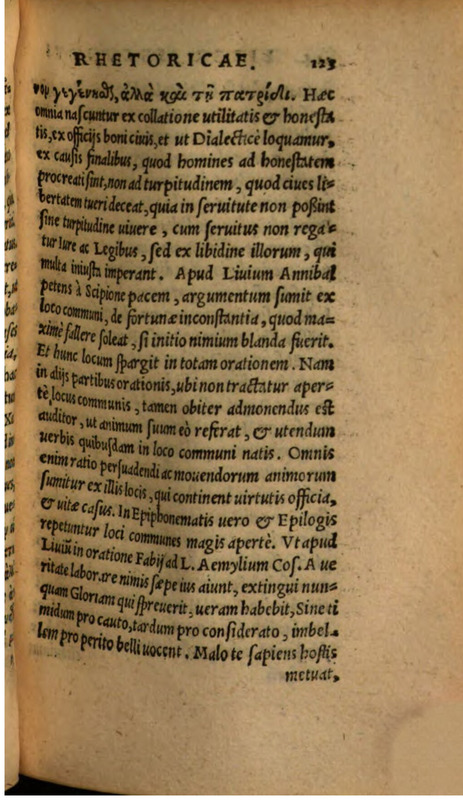 RHETORICAE. 123
νομ γεγενῆσθ, ἀλλὰ καὶ τῇ πατρίδι. Hæc
omnia nascuntur ex collatione utilitatis & honesta
tis, ex officijs boni ciuis, et ut Dialecticè loquamur,
ex causis finalibus, quod homines ad honestatem
procreati sint, non ad turpitudinem, quod ciues li-
bertatem tueri deceat, quia in seruitute non poßint
sine turpitudine uiuere, cum seruitus non rega-
tur Iure ac Legibus, sed ex libidine illorum, qui
multa iniusta imperant. Apud Liuium Annibal
petens à Scipione pacem, argumentum sumit ex
loco communi, de fortunæ inconstantia, quod ma-
ximè fallere soleat, si initio nimium blanda fuerit.
Et hunc locum spargit in totam orationem. Nam
in alijs partibus orationis, ubi non tractatur aper-
tè locus communis, tamen obiter admonendus est
auditor, ut animum suum eò referat, & utendum
uerbis quibusdam in loco communi natis. Omnis
enim ratio persuadendi ac mouendorum animorum
sumitur ex illis locis, qui continent uirtutis officia,
& uitæ casus. In Epiphonematis uero & Epilogis
repetuntur loci communes magis apertè. Vt apud
Liuiũ in oratione Fabij ad L. Aemylium Cos. A ue
ritate laborare nimis sæpe ius aiunt, extingui nun-
quam Gloriam qui spreuerit, ueram habebit, Sine ti
midum pro cauto, tardum pro considerato, imbel-
lem pro perito belli uocent. Malo te sapiens hostis
metuat,